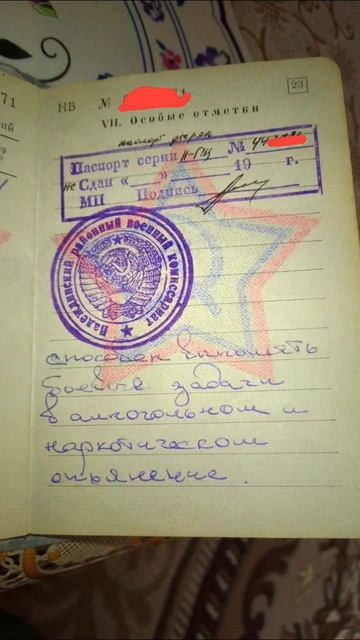 71
НВ №
23
VII. Особые отметки
паспорт утерян
Паспорт серии II-ГЦ № 44
не Сдан « » 19 г.
МП Подпись
Надеждинский районный военный комиссариат
способен выполнять
боевые задачи
в алкогольном и
наркотическом
опьянение.